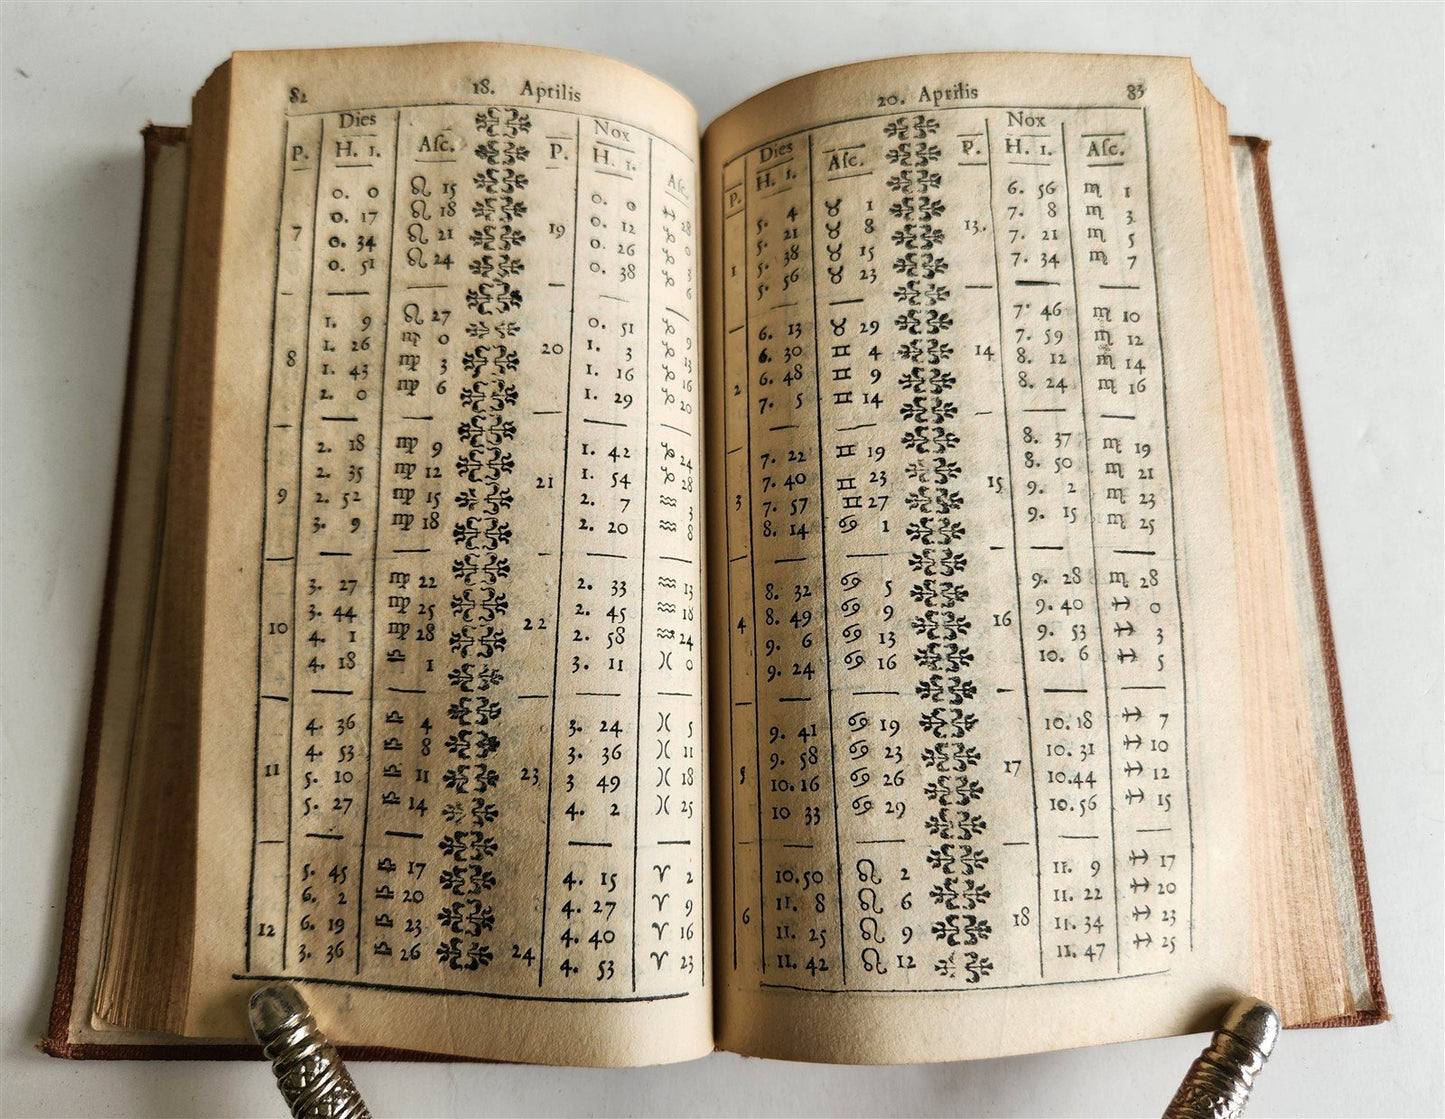 82 18. Aprilis
Dies Nox
P. H. 1. Asc. P. H. 1. Asc.
0. 0 ♌ 15 0. 0 ♐ 28
0. 17 ♌ 18 0. 12 ♑ 0
7 0. 34 ♌ 21 19 0. 26 ♑ 3
0. 51 ♌ 24 0. 38 ♑ 6
1. 9 ♌ 27 0. 51 ♑ 9
1. 26 ♍ 0 1. 3 ♑ 13
8 1. 43 ♍ 3 20 1. 16 ♑ 16
2. 0 ♍ 6 1. 29 ♑ 20
2. 18 ♍ 9 1. 42 ♑ 24
2. 35 ♍ 12 1. 54 ♑ 28
9 2. 52 ♍ 15 21 2. 7 ♒ 3
3. 9 ♍ 18 2. 20 ♒ 8
3. 27 ♍ 22 2. 33 ♒ 13
3. 44 ♍ 25 2. 45 ♒ 18
10 4. 1 ♍ 28 22 2. 58 ♒ 24
4. 18 ♎ 1 3. 11 ♓ 0
4. 36 ♎ 4 3. 24 ♓ 5
4. 53 ♎ 8 3. 36 ♓ 11
11 5. 10 ♎ 11 23 3 49 ♓ 18
5. 27 ♎ 14 4. 2 ♓ 25
5. 45 ♎ 17 4. 15 ♈ 2
6. 2 ♎ 20 4. 27 ♈ 9
12 6. 19 ♎ 23 4. 40 ♈ 16
3. 36 ♎ 26 24 4. 53 ♈ 23
20. Aprilis 83
Dies Nox
P. H. 1. Asc. P. H. 1. Asc.
5. 4 ♉ 1 6. 56 ♏ 1
5. 21 ♉ 8 13. 7. 8 ♏ 3
1 5. 38 ♉ 15 7. 21 ♏ 5
5. 56 ♉ 23 7. 34 ♏ 7
6. 13 ♉ 29 7. 46 ♏ 10
6. 30 ♊ 4 14 7. 59 ♏ 12
2 6. 48 ♊ 9 8. 12 ♏ 14
7. 5 ♊ 14 8. 24 ♏ 16
7. 22 ♊ 19 8. 37 ♏ 19
7. 40 ♊ 23 8. 50 ♏ 21
3 7. 57 ♊ 27 15 9. 2 ♏ 23
8. 14 ♋ 1 9. 15 ♏ 25
8. 32 ♋ 5 9. 28 ♏ 28
4 8. 49 ♋ 9 16 9. 40 ♐ 0
9. 6 ♋ 13 9. 53 ♐ 3
9. 24 ♋ 16 10. 6 ♐ 5
9. 41 ♋ 19 10. 18 ♐ 7
9. 58 ♋ 23 10. 31 ♐ 10
5 10. 16 ♋ 26 17 10. 44 ♐ 12
10 33 ♋ 29 10. 56 ♐ 15
10. 50 ♌ 2 11. 9 ♐ 17
11. 8 ♌ 6 11. 22 ♐ 20
6 11. 25 ♌ 9 18 11. 34 ♐ 23
11. 42 ♌ 12 11. 47 ♐ 25